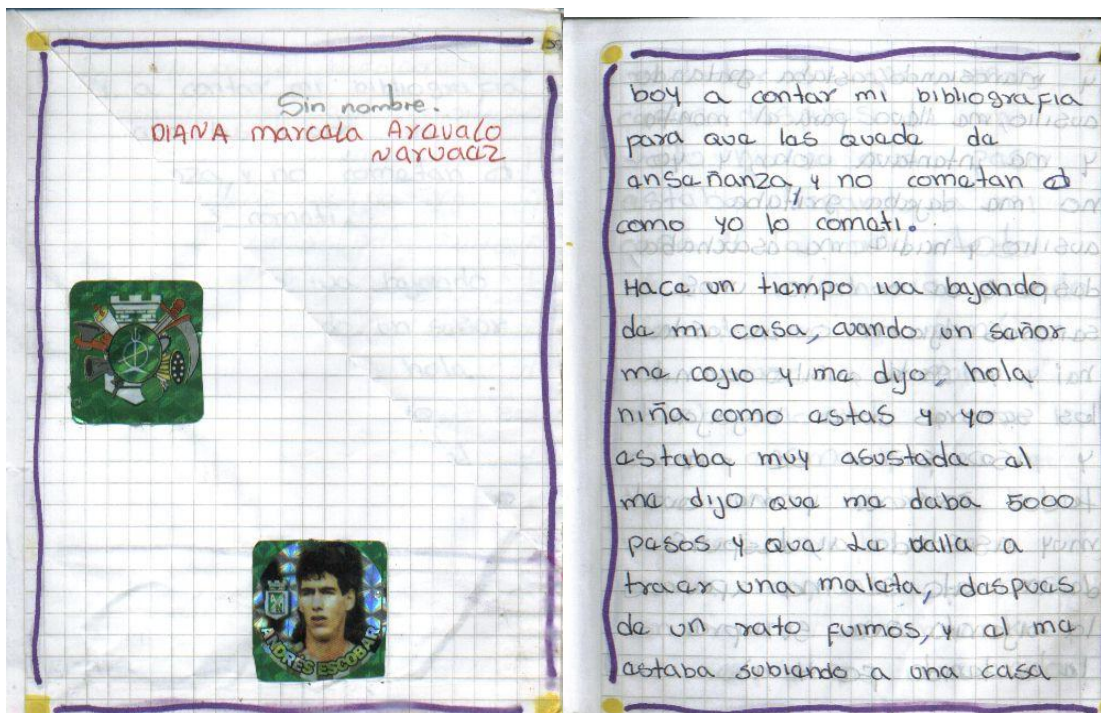 Sin nombre.
DIANA marcela Arevalo
Narvaez
ANDRÉS ESCOBAR
boy a contar mi bibliografia
para que les quede de
enseñanza, y no cometan el
como yo lo cometi.
Hace un tiempo iva bajando
de mi casa, cuando un señor
me cojio y me dijo, hola
niña como estas y yo
estaba muy asustada el
me dijo que me daba 5000
pesos y que le valla a
traer una maleta, despues
de un rato fuimos, y el me
estaba subiendo a una casa